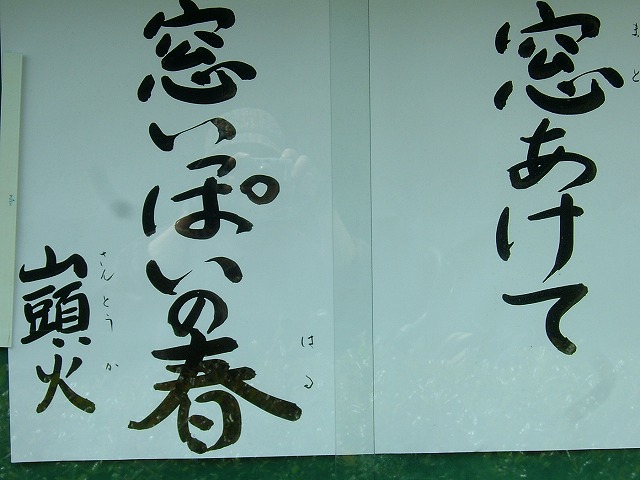 窓あけて
まど
窓いっぱいの春
はる
山頭火
さんとうか